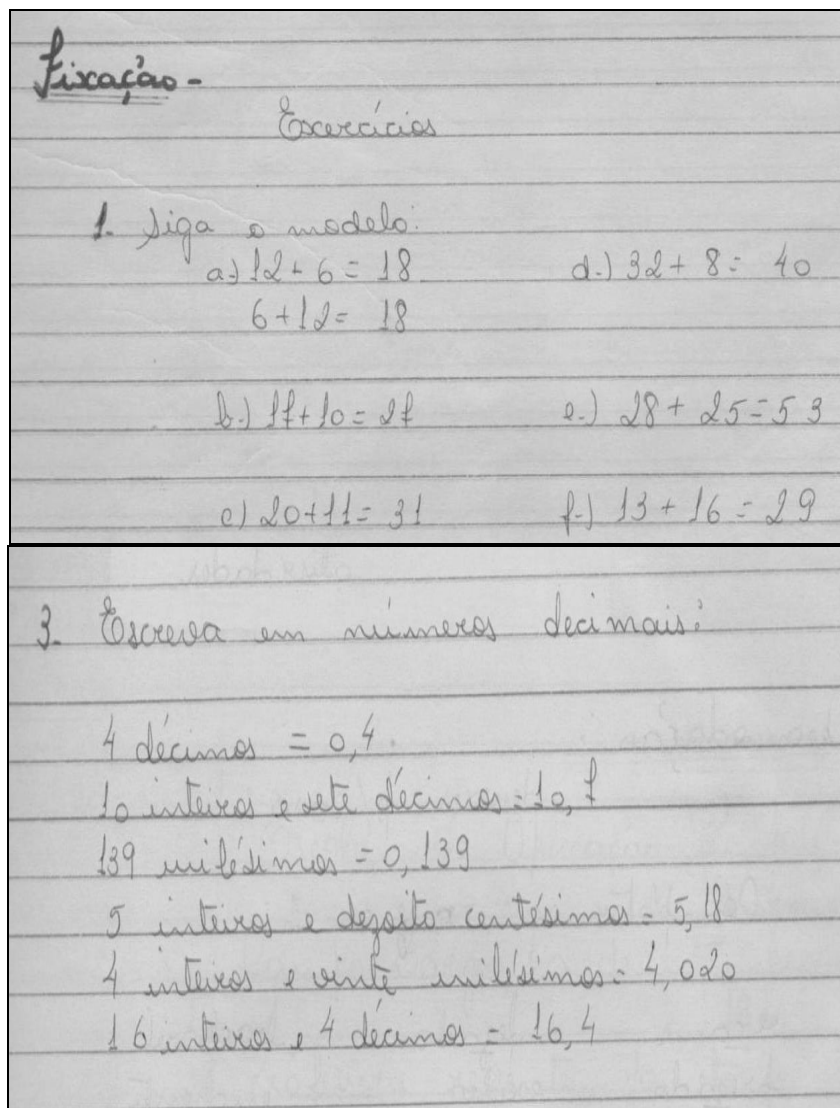 Fixação -
Exercícios
1. Siga o modelo:
a-) 12 + 6 = 18
6 + 12 = 18
b-) 17 + 10 = 27
c) 20 + 11 = 31
d-) 32 + 8 = 40
e-) 28 + 25 = 53
f-) 13 + 16 = 29
3- Escreva em números decimais:
4 décimos = 0,4.
10 inteiros e sete décimos = 10,7
139 milésimos = 0,139
5 inteiros e dezoito centésimos = 5,18
4 inteiros e vinte milésimos = 4,020
16 inteiros e 4 décimos = 16,4